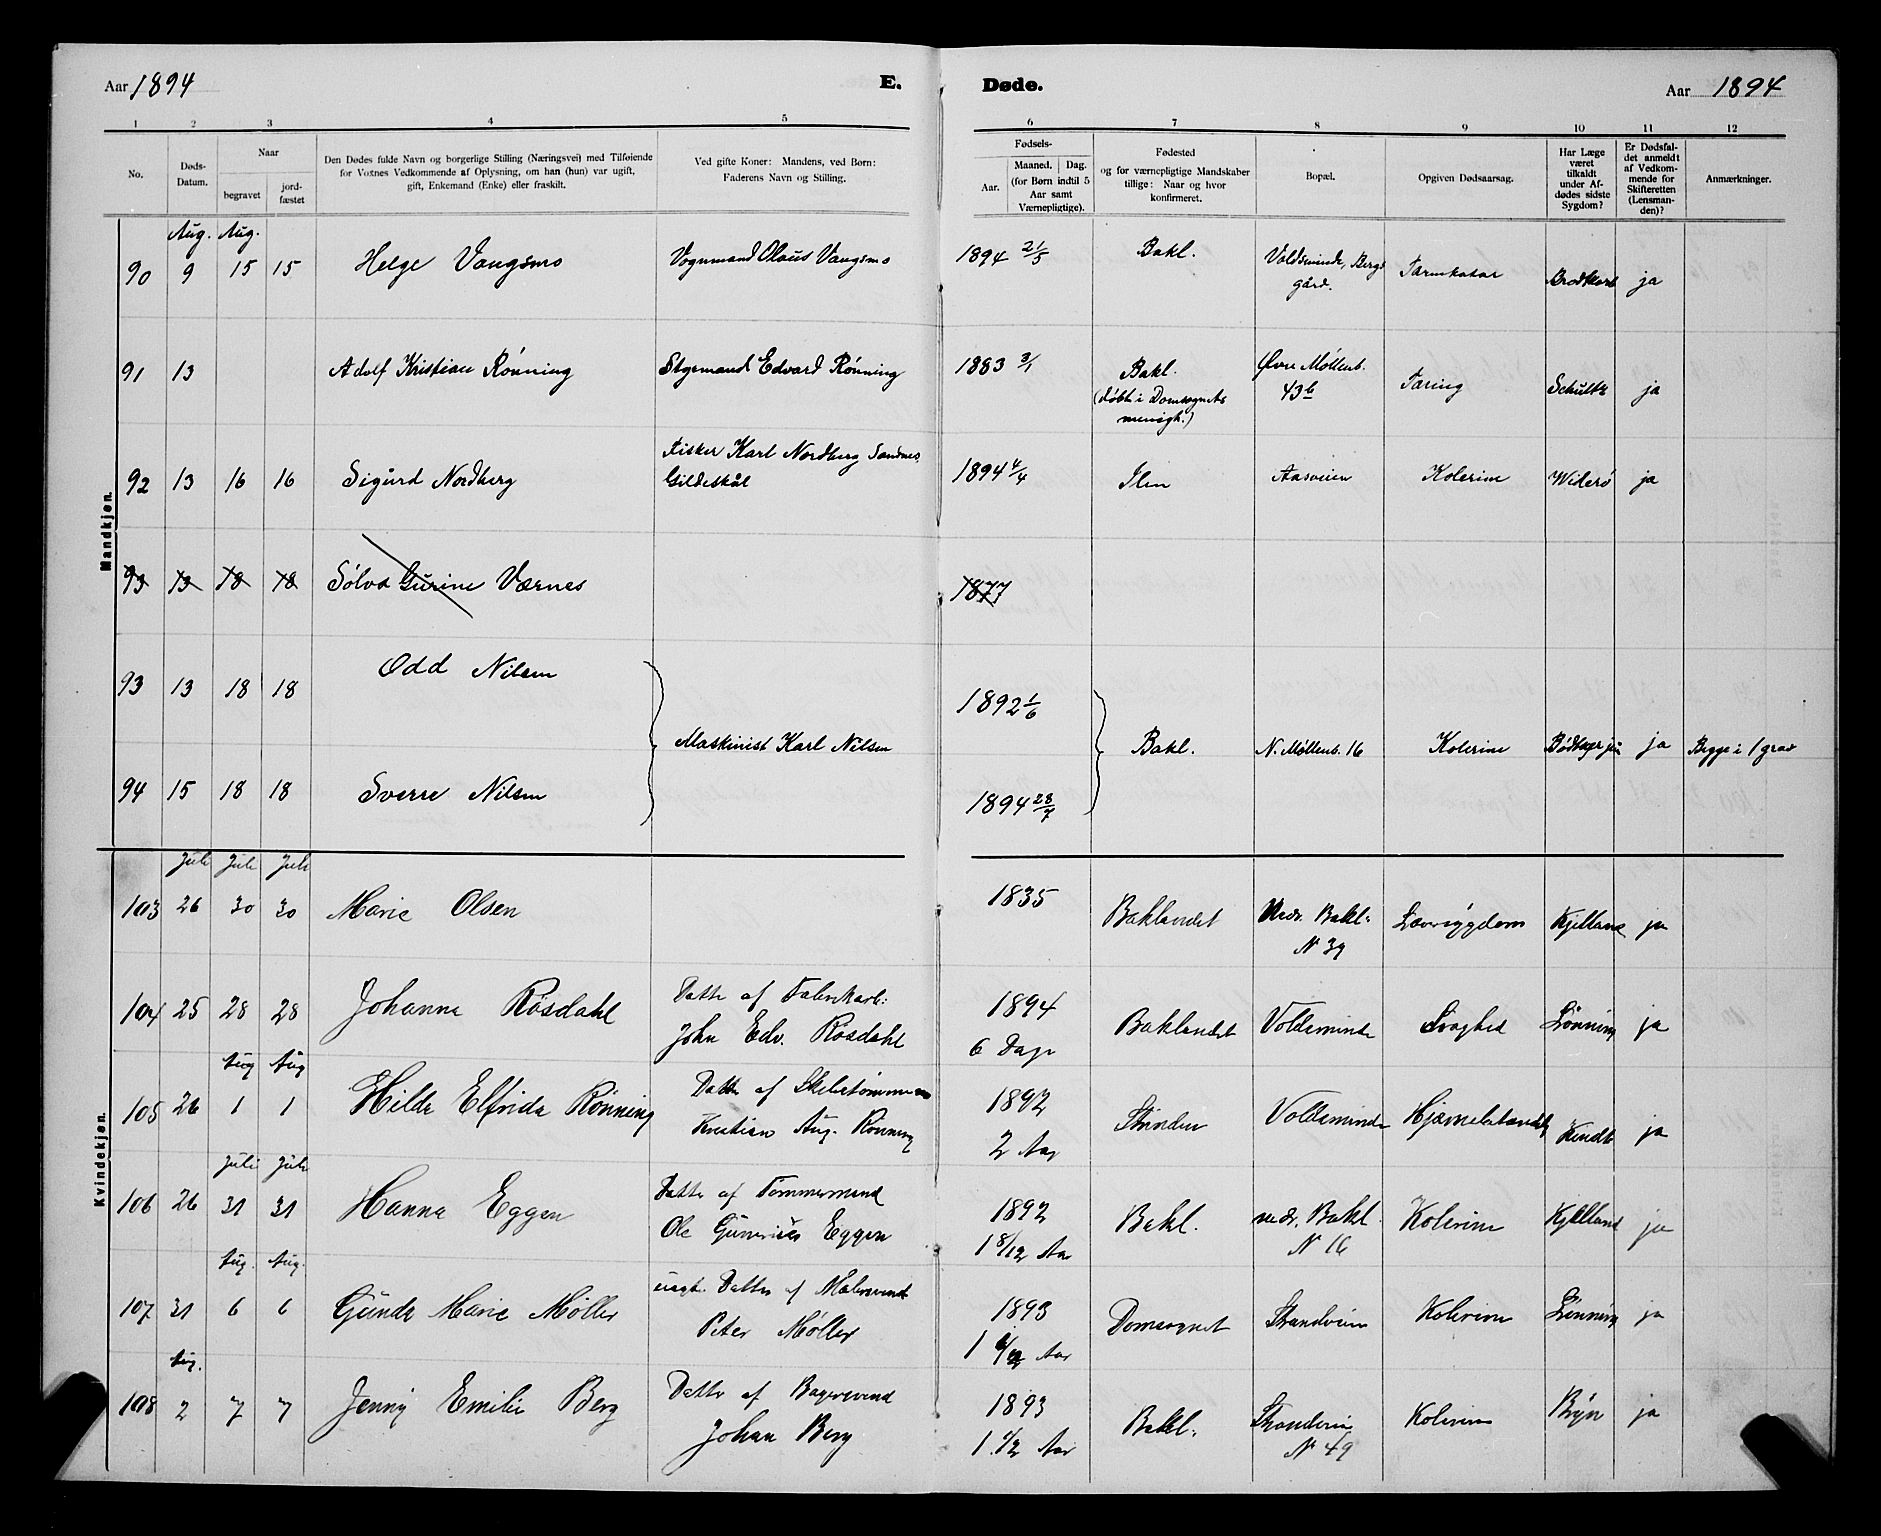 Aar 1894 E. Døde. Aar 1894
1 2 3 4 5 6 7 8 9 10 11 12
No. Døds-Datum. Naar begravet jord-fæstet Den Dødes fulde Navn og borgerlige Stilling (Næringsvei) med Tilføiende for Voxnes Vedkommende af Oplysning, om han (hun) var ugift, gift, Enkemand (Enke) eller fraskilt. Ved gifte Koner: Mandens, ved Børn: Faderens Navn og Stilling. Fødsels- Aar. Maaned. Dag. (for Børn indtil 5 Aar samt Værnepligtige). Fødested og for værnepligtige Mandskaber tillige: Naar og hvor konfirmeret. Bopæl. Opgiven Dødsaarsag. Har Læge været tilkaldt under Afdødes sidste Sygdom? Er Dødsfaldet anmeldt af Vedkommende for Skifteretten (Lensmanden)? Anmærkninger.
Mandkjøn.
Aug. Aug.
90 9 15 15 Helge Vangsmo Vognmand Olaus Vangsmo 1894 21/5 Bakl. Voldsminde, Bergs gård. Tarmkatar Brodtkorb ja
91 13 Adolf Kristian Rónning Styrmand Edvard Rónning 1883 3/1 Bakl. (døbt i Domsognets menigh.) Øvre Móllenb. 43 b Tæring Schultz ja
92 13 16 16 Sigurd Nordberg Fisker Karl Nordberg Sandnes, Gildeskål 1894 4/4 Ilen Aasveien Kolerine Widerö ja
93 13 18 18 Sólva Gurine Værnes 1877
93 13 18 18 Odd Nilsen 1892 1/6
Maskinist Karl Nilsen Bakl. N. Møllenb. 16 Kolerine ja Begge i 1 grav
94 15 18 18 Sverre Nilsen 1894 28/7
Kvindekjøn.
Juli Juli Juli
103 26 30 30 Marie Olsen 1835 Baklandet Nedr. Bakl. N 39 Kjelland ja
104 25 28 28 Johanna Rosdahl Datter af John Edv. Rosdahl 1894 6 Dage Baklandet Voldsminde Svaghed Lønning ja
Aug Aug
105 26 1 1 Hilda Elfrida Rønning Datter af Kristian Aug. Rønning 1892 2 Aar Strinden Voldsminde Kindt ja
Juli Juli
106 26 31 31 Hanna Eggen Datter af Tømmermand Ole Eggen 1892 1 8/12 Aar Bakl. nedr. Bakl. N 16 Kolerine Kjelland ja
Aug. Aug.
107 31 6 6 Gunda Marie Møller Datter af Peter Møller 1893 1 Aar Domsognet Strandveien Kolerine Lønning ja
Aug.
108 2 7 7 Jenny Emilie Berg Datter af Bagersvend Johan Berg 1893 1 1/2 Aar Bakl. Strandveien N 49 Kolerine Bryn ja